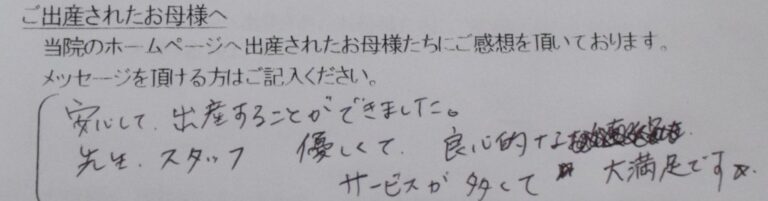 ご出産されたお母様へ
当院のホームページへ出産されたお母様たちにご感想を頂いております。
メッセージを頂ける方はご記入ください。
安心して、出産することができました。
先生、スタッフ 優しくて、良心的な
サービスが多くて 大満足です